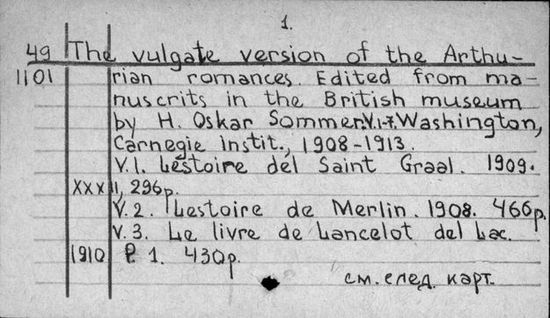 1.
49 The vulgate version of the Arthu-
1101 rian romances. Edited from ma-
nuscrits in the British museum
by H. Oskar Sommer. V.1-7. Washington,
Carnegie Instit., 1908-1913.
V.1. Lestoire del Saint Graal. 1909.
XXXII, 296p.
V.2. Lestoire de Merlin. 1908. 466p.
V.3. Le livre de Lancelot del Lac.
1910 P. 1. 430p.
см. след. карт.